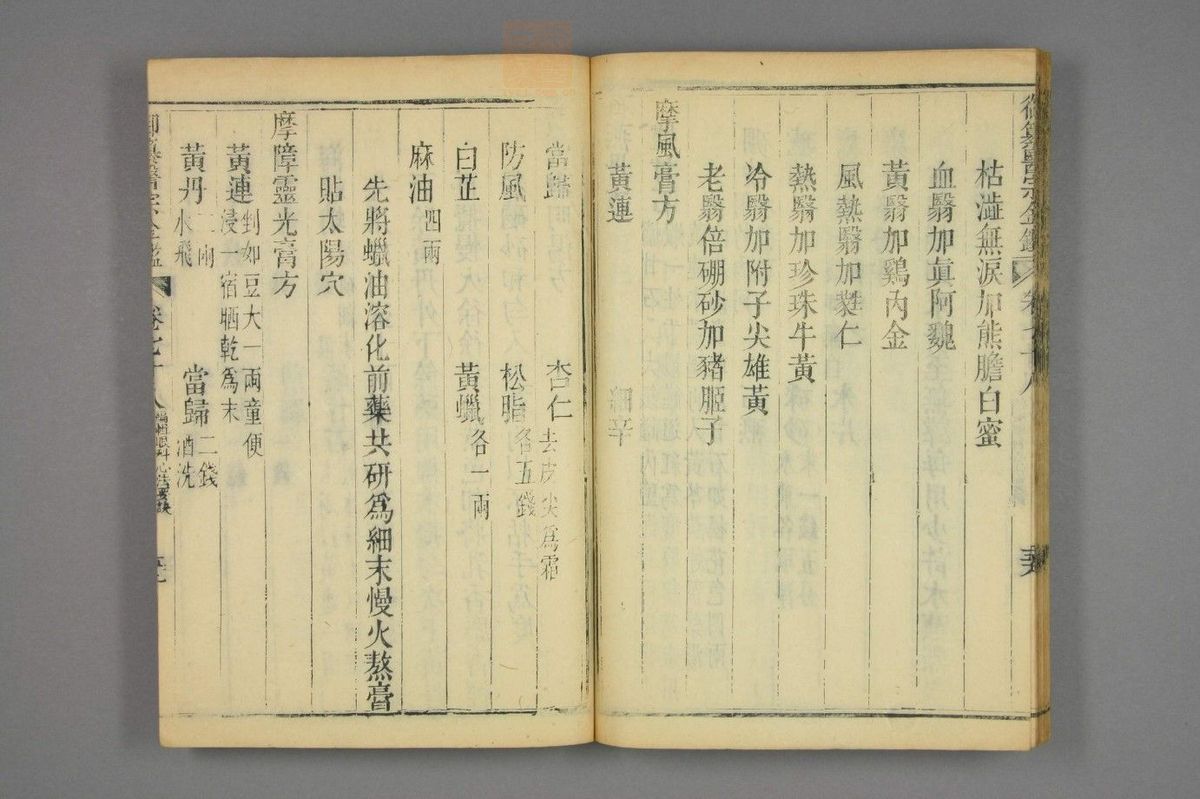 御纂醫宗金鑑 卷七十八
枯澁無淚加熊膽白蜜
血翳加眞阿魏
黃翳加鷄內金
風熱翳加蕤仁
熱翳加珍珠牛黃
冷翳加附子尖雄黃
老翳倍硼砂加猪胰子
摩風膏方
黃連 細辛
當歸 杏仁去皮尖爲霜
防風 松脂各五錢
白芷 黃蠟各一兩
麻油四兩
先將蠟油溶化前藥共研爲細末慢火熬膏
貼太陽穴
摩障靈光膏方
黃連剉如豆大一兩童便浸一宿晒乾爲末
黃丹二兩水飛 當歸二錢酒洗
御纂醫宗金鑑 卷七十八 編輯眼科心法要訣